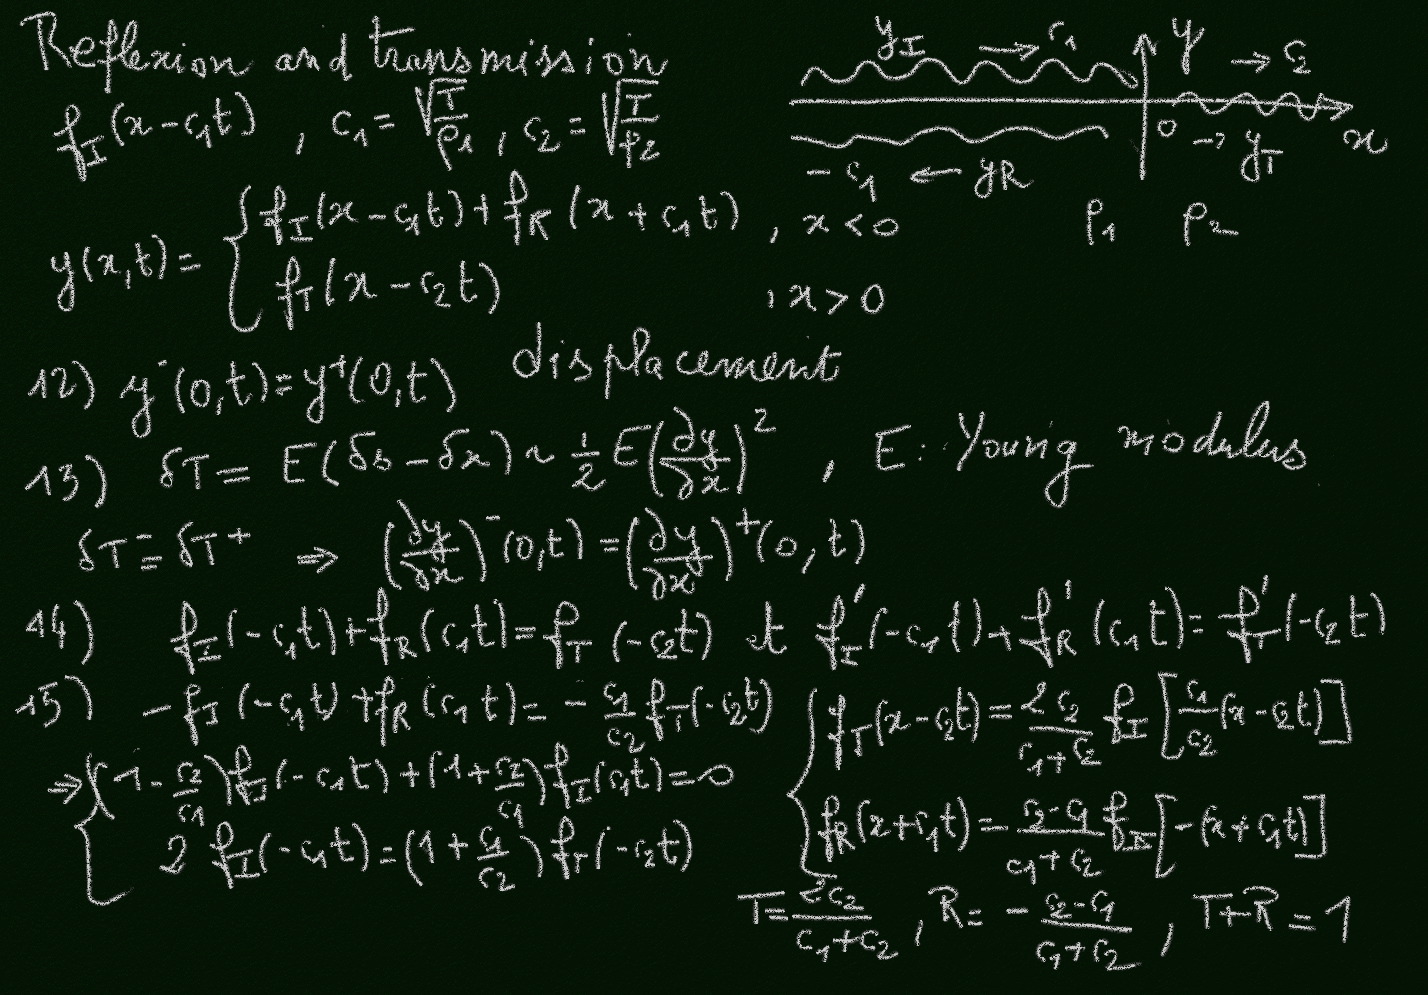 Reflexion and transmission
f_I(x-c₁t) , c₁ = √(T/ρ₁) , c₂ = √(T/ρ₂)
y_I → c₁ y → c₂
0 → y_T x
-c₁ ← y_R
ρ₁ ρ₂
y(x,t) = { f_I(x-c₁t) + f_R(x+c₁t) , x<0
f_T(x-c₂t) , x>0
12) y⁻(0,t) = y⁺(0,t) displacement
13) δT = E(δs-δx) ~ 1/2 E(∂y/∂x)² , E: Young modulus
δT⁻ = δT⁺ ⇒ (∂y/∂x)⁻(0,t) = (∂y/∂x)⁺(0,t)
14) f_I(-c₁t) + f_R(c₁t) = f_T(-c₂t) et f'_I(-c₁t) + f'_R(c₁t) = f'_T(-c₂t)
15) -f_I(-c₁t) + f_R(c₁t) = -c₁/c₂ f_T(-c₂t)
⇒ { (1-c₂/c₁) f_I(-c₁t) + (1+c₂/c₁) f_I(c₁t) = 0
2 f_I(-c₁t) = (1+c₁/c₂) f_T(-c₂t)
{ f_T(x-c₂t) = 2c₂/(c₁+c₂) f_I[c₁/c₂(x-c₂t)]
f_R(x+c₁t) = (c₂-c₁)/(c₁+c₂) f_I[-(x+c₁t)]
T = 2c₂/(c₁+c₂) , R = -(c₂-c₁)/(c₁+c₂) , T+R = 1